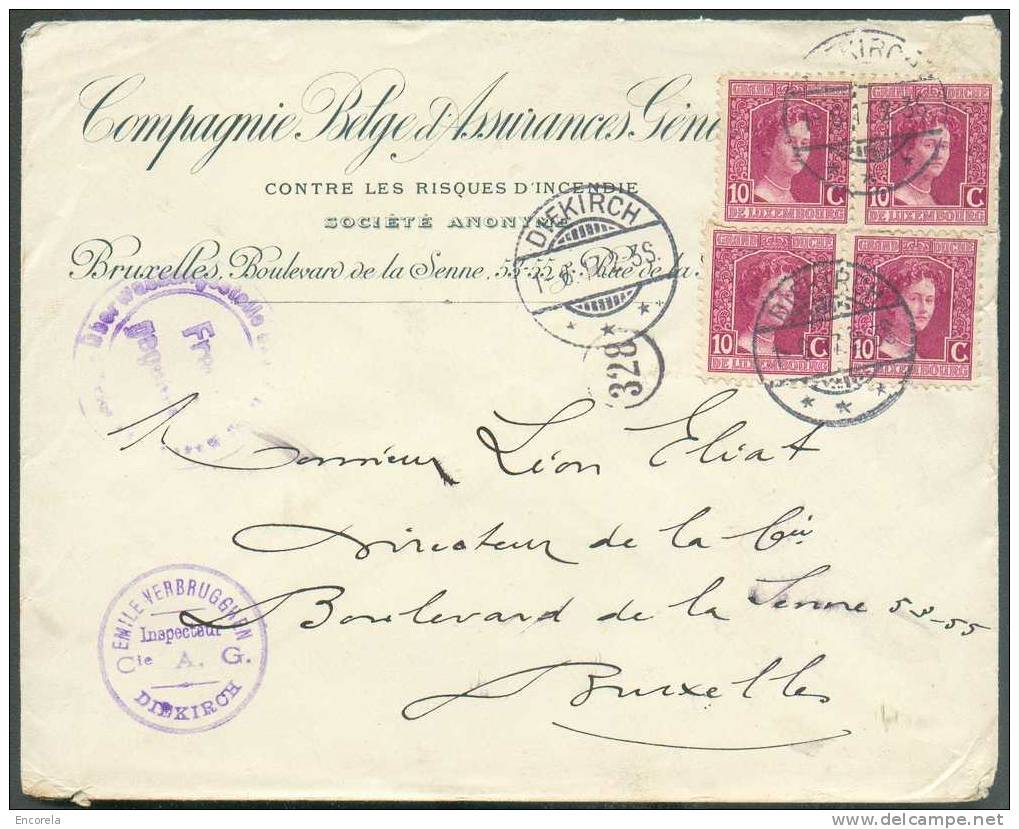 Compagnie Belge d'Assurances Géné
CONTRE LES RISQUES D'INCENDIE
SOCIÉTÉ ANONYME
Bruxelles, Boulevard de la Senne, 53-55 &
DIEKIRCH
328
GRAND DUCHE
10 C
DE LUXEMBOURG
GRAND DUCHE
10 C
DE LUXEMBOURG
GRAND DUCHE
10 C
DE LUXEMBOURG
GRAND DUCHE
10 C
DE LUXEMBOURG
Überwachungsstelle
Monsieur Léon Eliat
Directeur de la Cie
Boulevard de la Senne 53-55
Bruxelles
EMILE VERBRUGGHEN
Inspecteur
Cie A. G.
DIEKIRCH
Encorela
www.delcampe.net